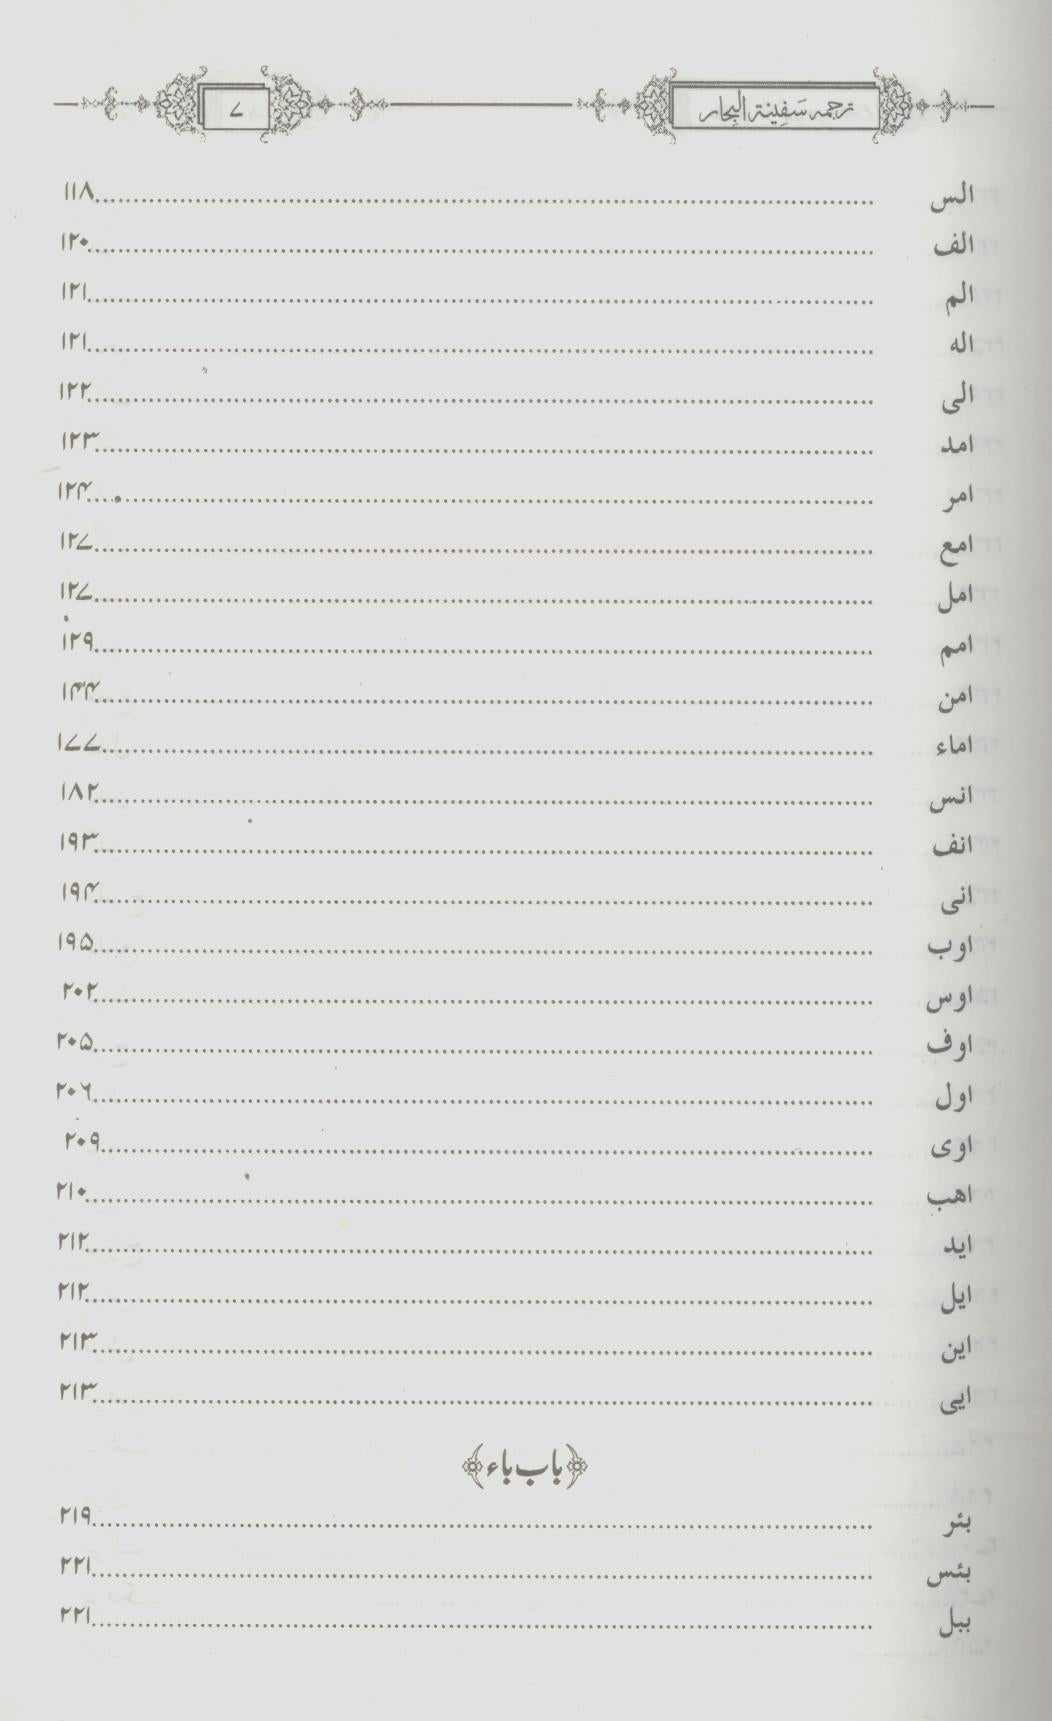 ترجمه سَفِینة البِحار ۷
الس ۱۱۸
الف ۱۲۰
الم ۱۲۱
اله ۱۲۱
الی ۱۲۲
امد ۱۲۳
امر ۱۲۴
امع ۱۲۷
امل ۱۲۷
امم ۱۲۹
امن ۱۴۴
اماء ۱۷۷
انس ۱۸۲
انف ۱۹۳
انی ۱۹۴
اوب ۱۹۵
اوس ۲۰۲
اوف ۲۰۵
اول ۲۰۶
اوی ۲۰۹
اهب ۲۱۰
اید ۲۱۲
ایل ۲۱۲
این ۲۱۳
ایی ۲۱۳
﴿باب باء﴾
بئر ۲۱۹
بئس ۲۲۱
ببل ۲۲۱